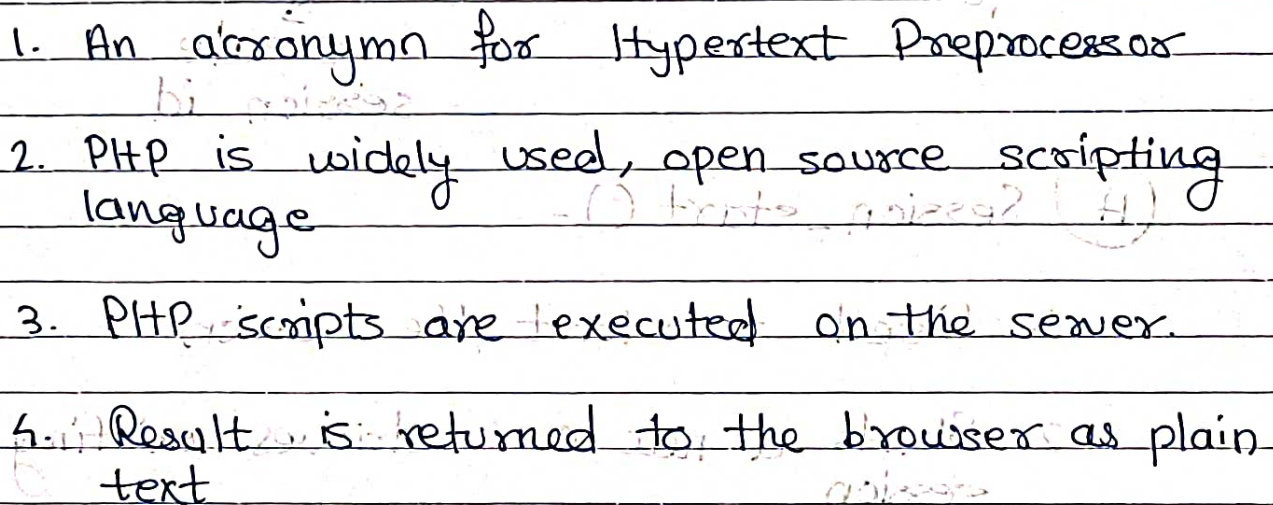 1. An acronymn for Hypertext Preprocessor
2. PHP is widely used, open source scripting
language
3. PHP scripts are executed on the server.
4. Result is returned to the browser as plain
text